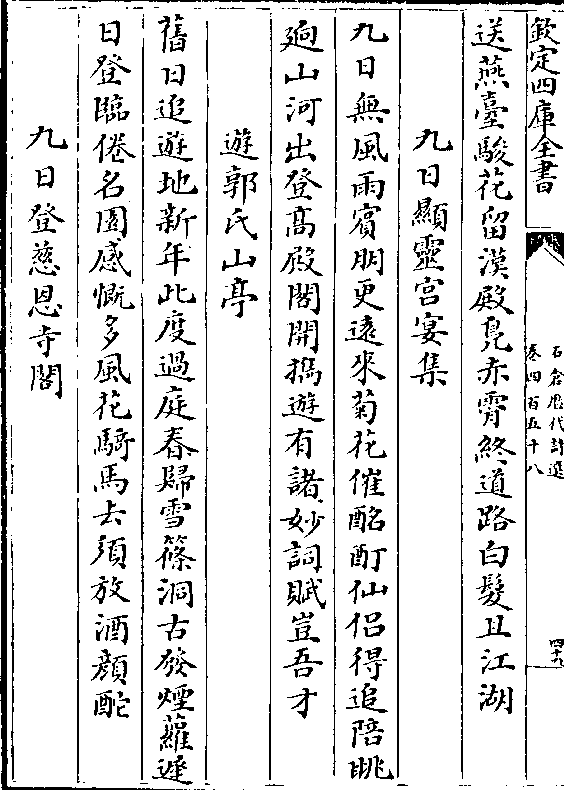 欽定四庫全書
石倉歷代詩選
卷四百五十八
四十九
送燕臺駿花留漢殿鳧赤霄終道路白髮且江湖
九日顯靈宫宴集
九日無風雨賓朋更逺來菊花催酩酊仙侣得追陪眺
逈山河出登髙殿閣開擕遊有諸妙詞賦豈吾才
遊郭氏山亭
舊日追遊地新年此度過庭春歸雪篠洞古發煙蘿遲
日登臨倦名園感慨多風花騎馬去須放酒顔酡
九日登慈恩寺閣